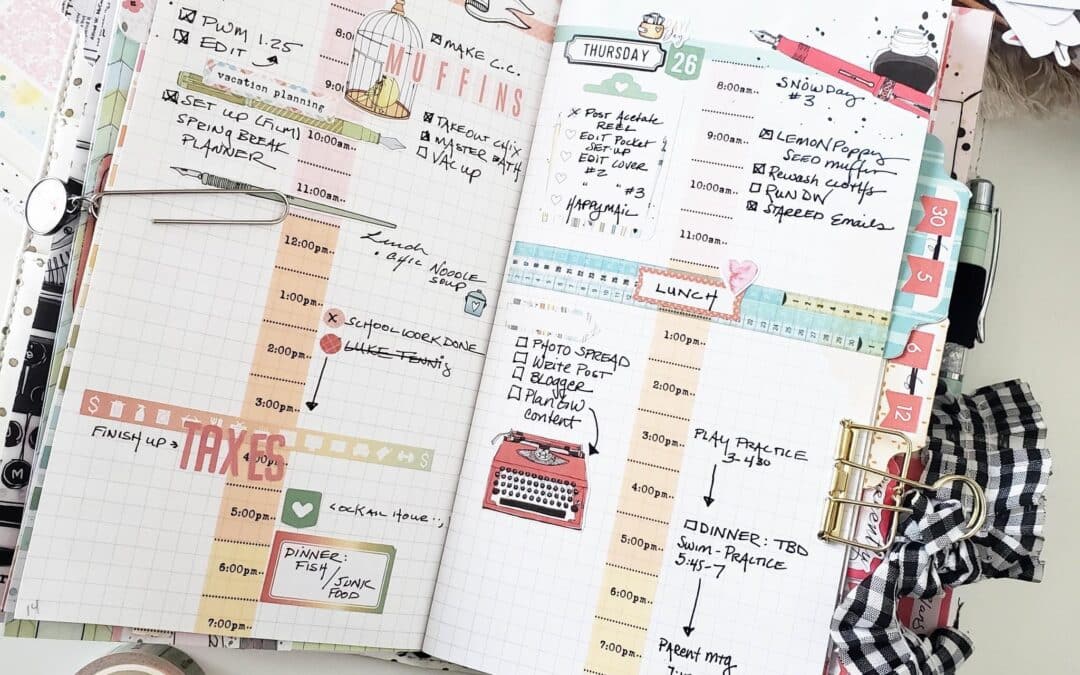 PWM 1.25
EDIT
vacation planning
SET UP (FILM)
SPRING BREAK
PLANNER
8:0
9:0
10:00am..
11:00am..
12:00pm..
1:00pm..
2:00pm..
3:00pm..
4:00pm..
5:00pm..
6:00pm..
7:00pm..
MAKE C.C.
MUFFINS
TAKEOUT CHIX
MASTER BATH
VAC UP
Lunch
CHIC NOODLE
SOUP
SCHOOLWORK DONE
LUKE TENNIS
FINISH UP
TAXES
COCKTAIL HOUR...
DINNER:
FISH/
JUNK
FOOD
14
THURSDAY
26
POST Acetate
REEL
EDIT Pocket
SET UP
EDIT COVER
#2
" " #3
HAPPY MAIL
8:00am..
9:00am..
10:00am..
11:00am..
SNOW DAY
#3
LEMON POPPY
SEED MUFFIN
REWASH CLOTHS
RUN DW
STARRED EMAILS
LUNCH
PHOTO SPREAD
WRITE POST
BLOGGER
PLAN
content
1:00pm..
2:00pm..
3:00pm..
4:00pm..
5:00pm..
6:00pm..
7:00pm..
PLAY PRACTICE
3-430
DINNER: TBD
SWIM-PRACTICE
5:45-7
PARENT MTG
30
5
6
12